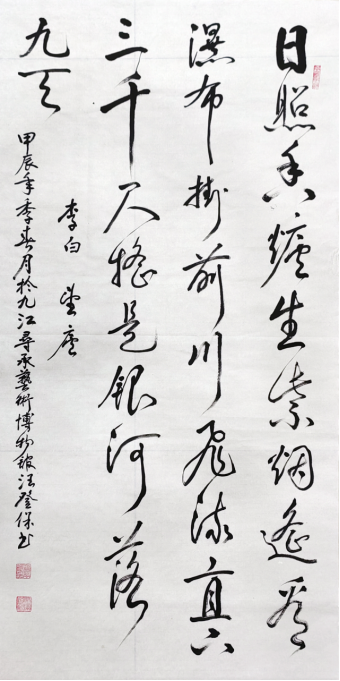 日照香爐生紫烟遙看
瀑布掛前川飛流直下
三千尺疑是銀河落
九天
李白 望廬
甲辰年季春月於九江尋承藝術博物館汪登保书